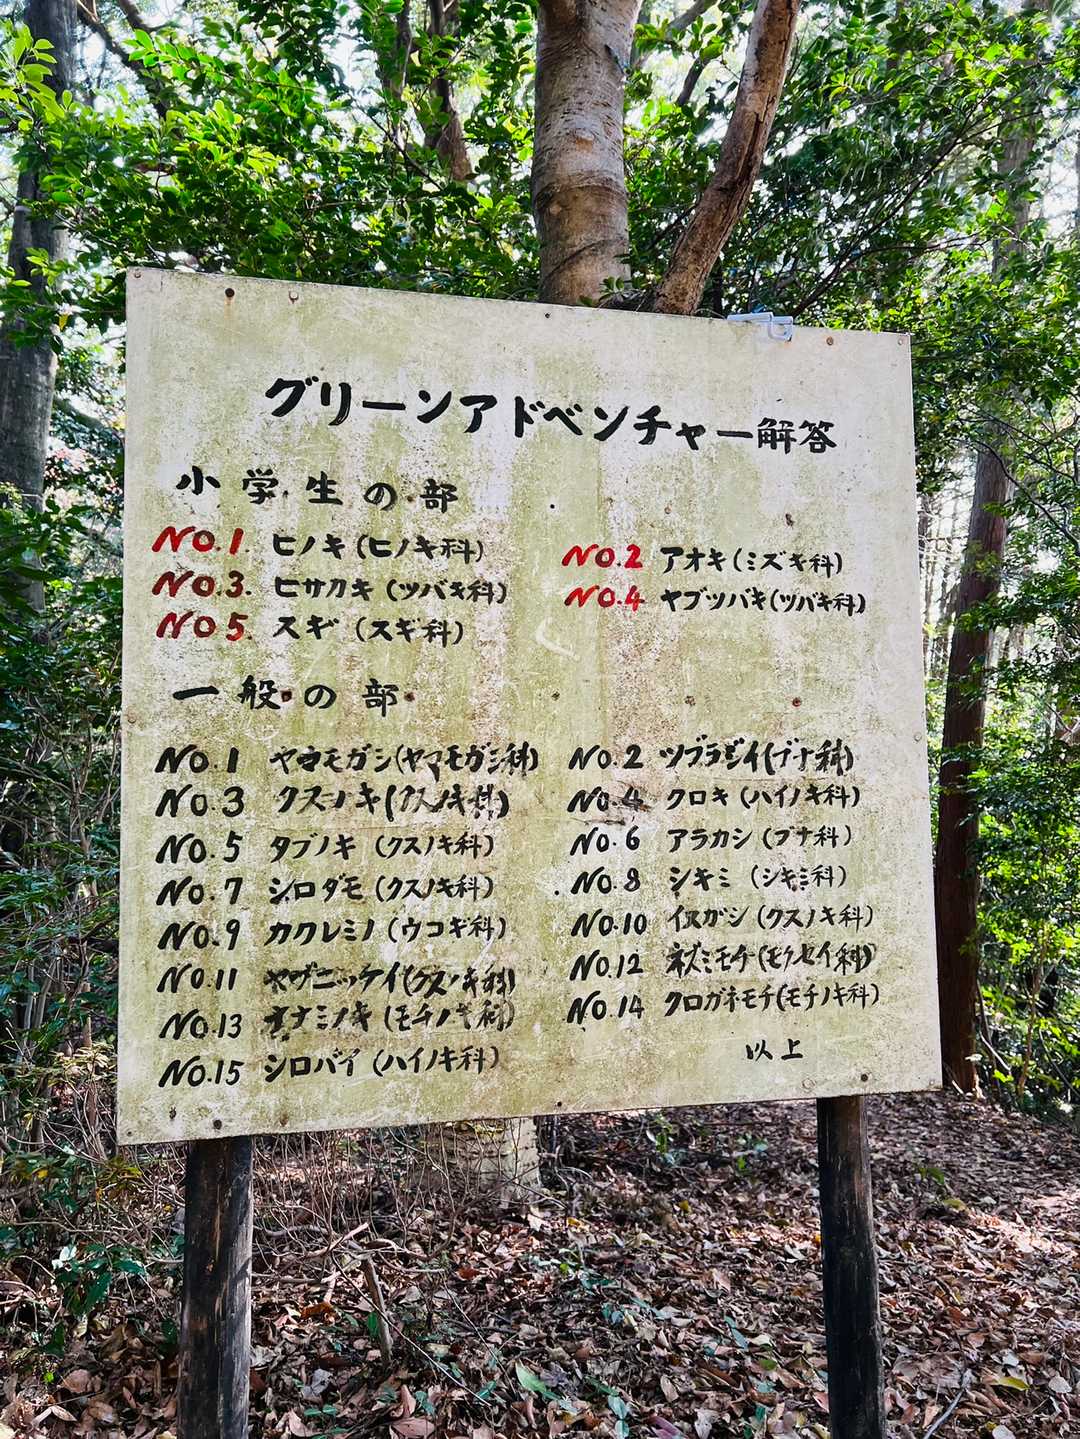 グリーンアドベンチャー解答
小学生の部
NO.1. ヒノキ(ヒノキ科) NO.2 アオキ(ミズキ科)
NO.3. ヒサカキ(ツバキ科) NO.4 ヤブツバキ(ツバキ科)
NO5. スギ(スギ科)
一般の部
NO.1 ヤマモガシ(ヤマモガシ科) NO.2 ツブラジイ(ブナ科)
NO.3 クスノキ(クスノキ科) NO.4 クロキ(ハイノキ科)
NO.5 タブノキ(クスノキ科) NO.6 アラカシ(ブナ科)
NO.7 シロダモ(クスノキ科) NO.8 シキミ(シキミ科)
NO.9 カクレミノ(ウコギ科) NO.10 (クスノキ科)
NO.11 ヤブニッケイ(クスノキ科) NO.12 ネズミモチ(モクセイ科)
NO.13 ナナミノキ(モチノキ科) NO.14 クロガネモチ(モチノキ科)
NO.15 シロバイ(ハイノキ科)
以上